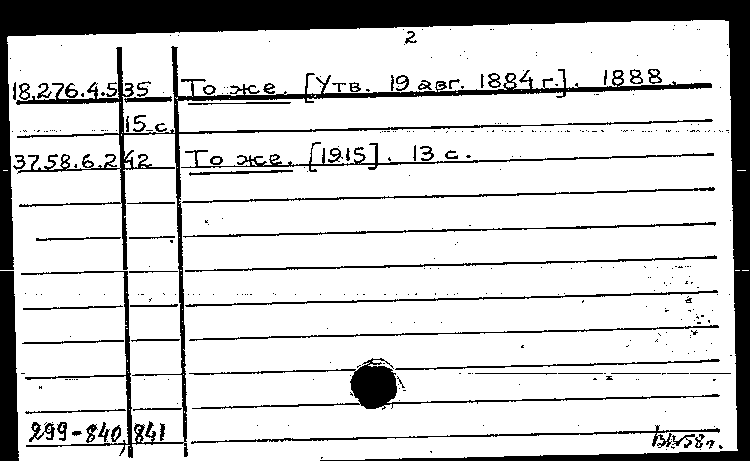 2
18.276.4.535 То же. [Утв. 19 авг. 1884 г.]. 1888.
15 с.
37.58.6.242 То же. [1915]. 13 с.
299-840, 841